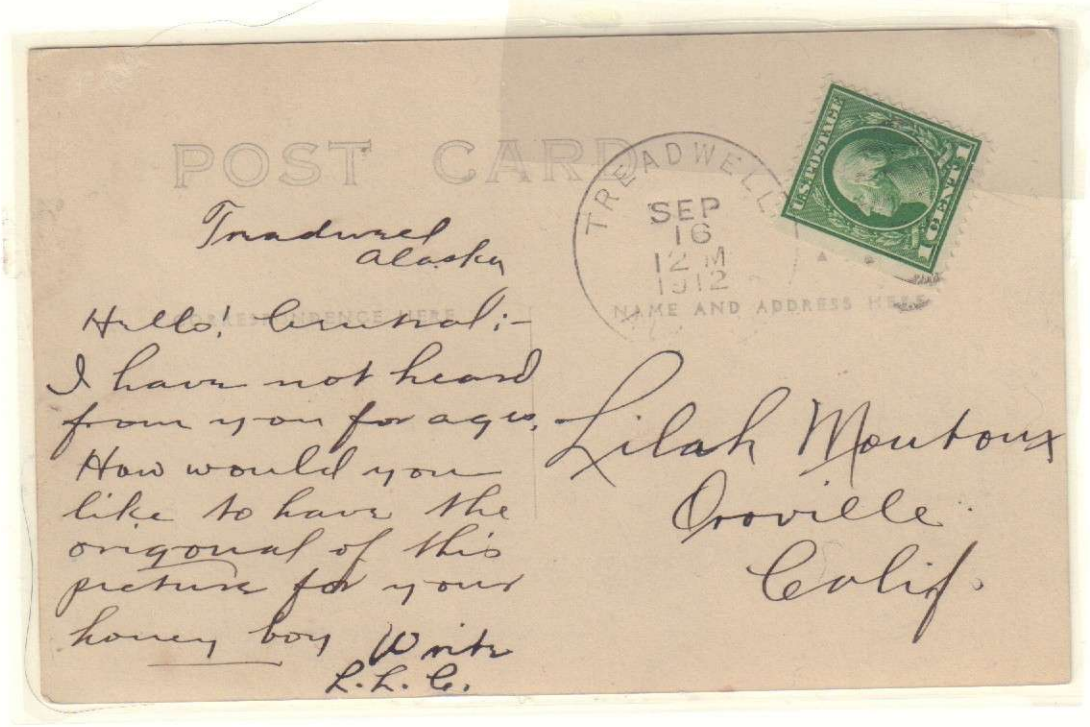 POST CARD
TREADWELL
SEP
16
12 M
1912
U.S. POSTAGE
1 CENT 1
Treadwell
Alaska
CORRESPONDENCE HERE
NAME AND ADDRESS HERE
Hello! Central:-
I have not heard
from you for ages.
How would you
like to have the
origonal of this
picture for your
honey boy Write
L.L.C.
Lilah Moutoux
Oroville
Calif.